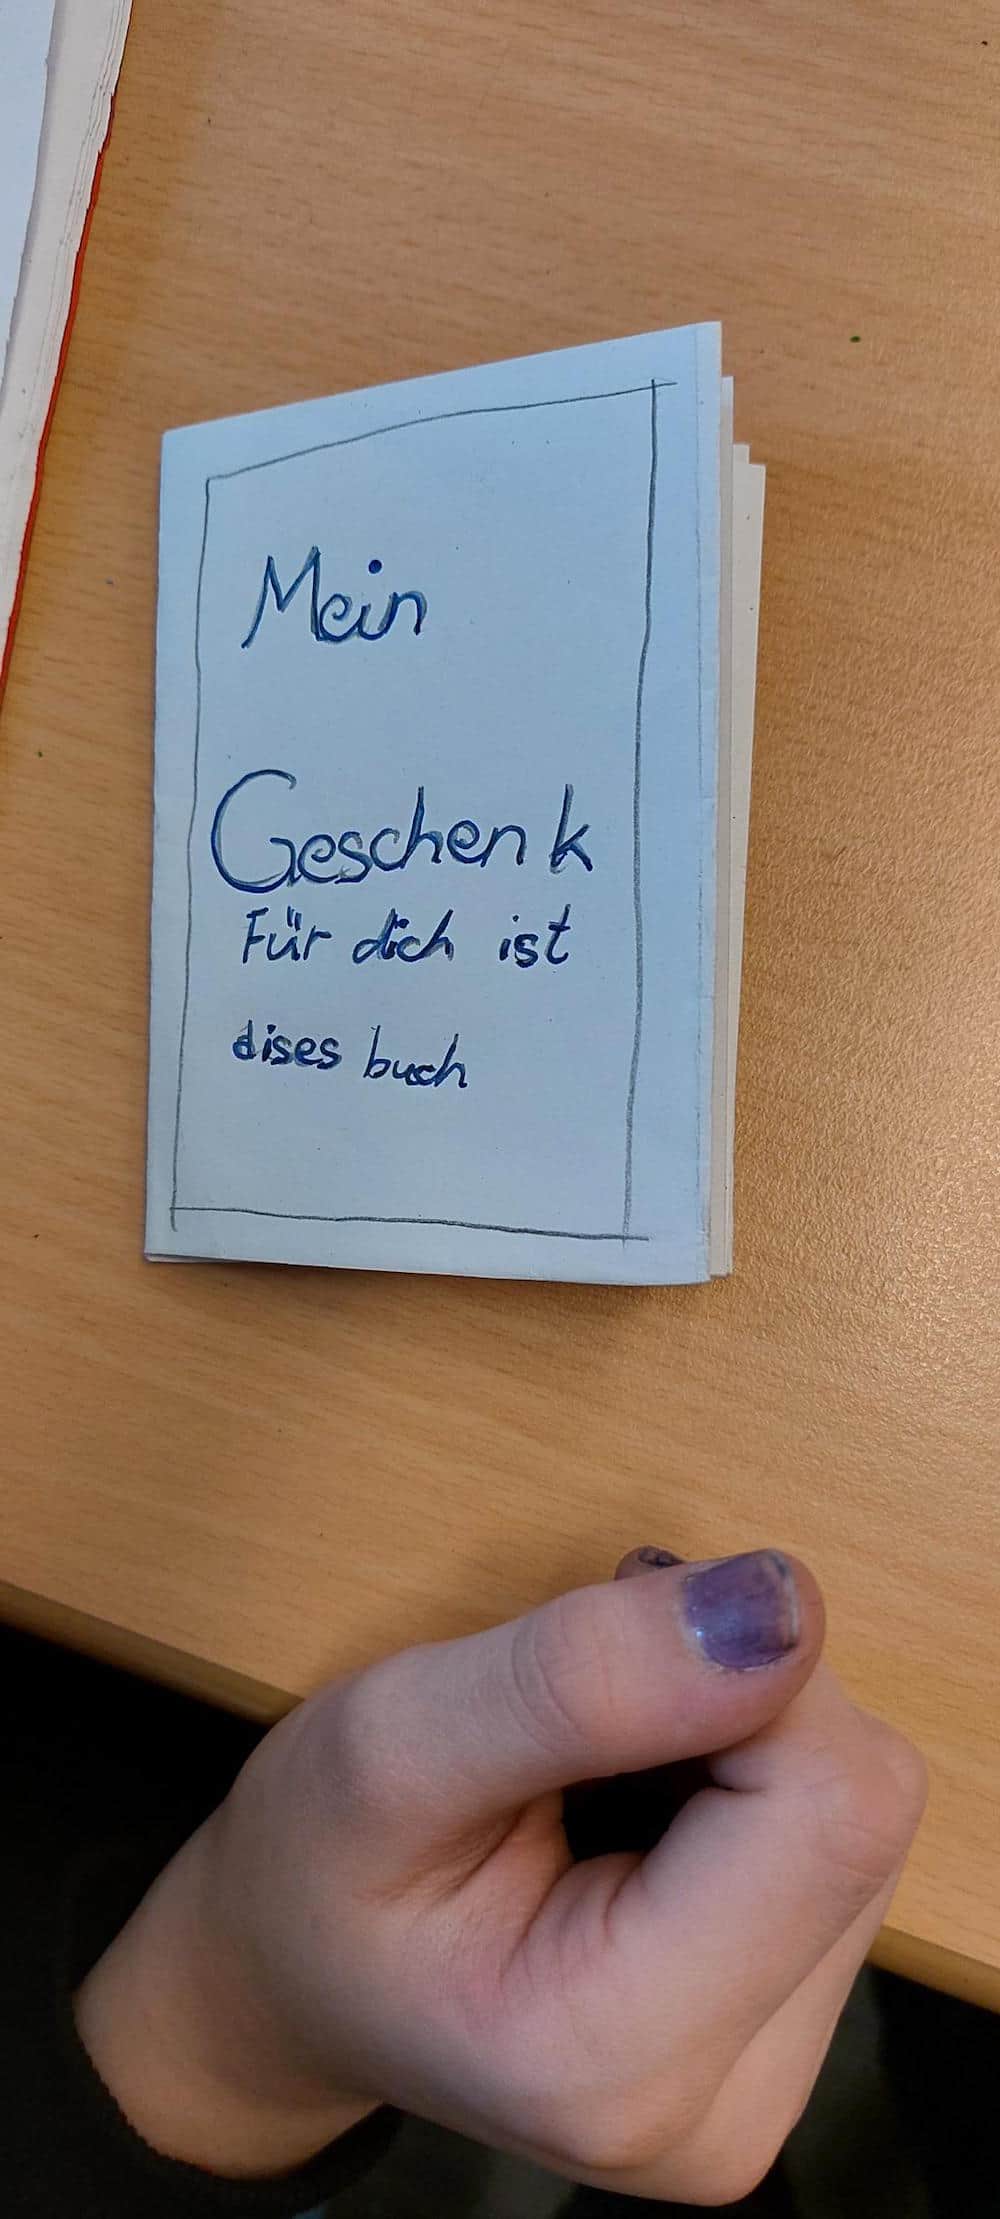 Mein
Geschenk
Für dich ist
dises buch